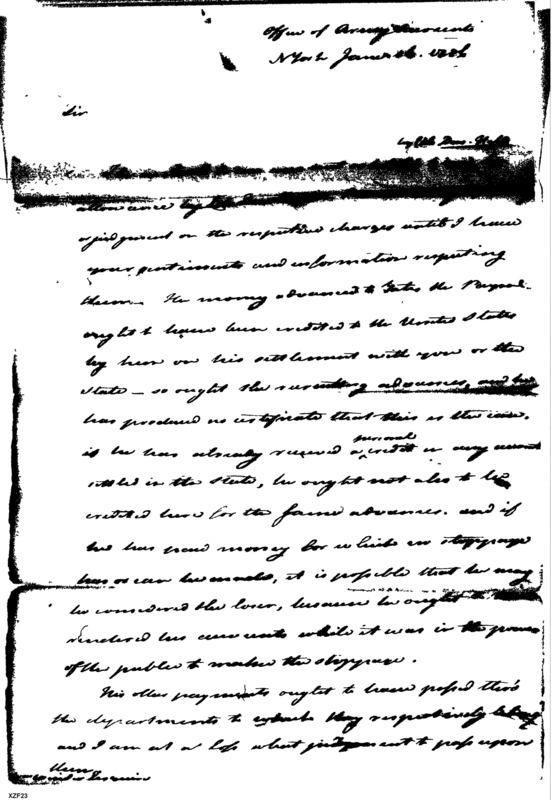 Office of Army Accounts
N York June
Sir
allowance
a judgment on the respective charges until I have
your sentiments and information respecting
them. The money advanced to
ought to have been credited to the United States
by him on his settlement with you or the
State — so ought the recruiting advances, and he
has produced no certificate that this is the case.
if he has already received a personal credit in any account
settled in the State, he ought not also to be
credited here for the same advances. and if
he has paid money for which no stoppage
has or can be made, it is possible that he may
be considered the loser, because he ought to have
rendered his accounts while it was in the power
of the public to make the stoppage.
His other payments ought to have passed thro'
the departments to which they respectively belong
and I am at a loss what judgment to pass upon
them
XZF23